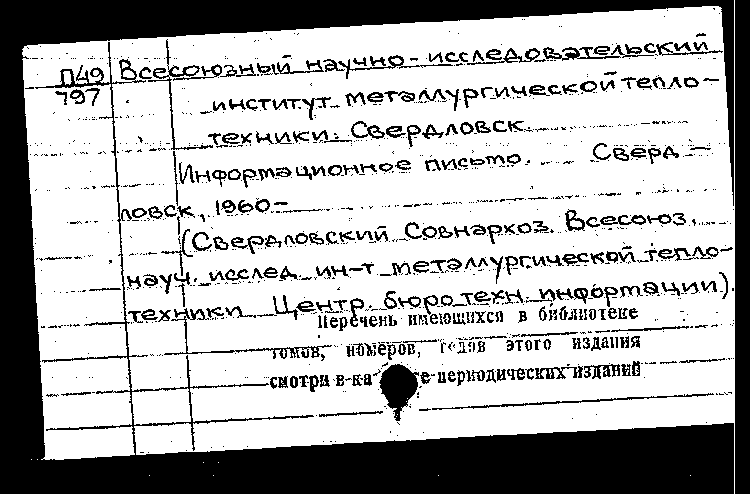 П49 Всесоюзный научно-исследовательский
797 институт металлургической тепло-
техники. Свердловск.
Информационное письмо. Сверд-
ловск, 1960-
(Свердловский Совнархоз. Всесоюз.
науч. исслед. ин-т металлургической тепло-
техники Центр. бюро техн. информации).
Перечень имеющихся в библиотеке
томов, номеров, годов этого издания
смотри в периодических изданий